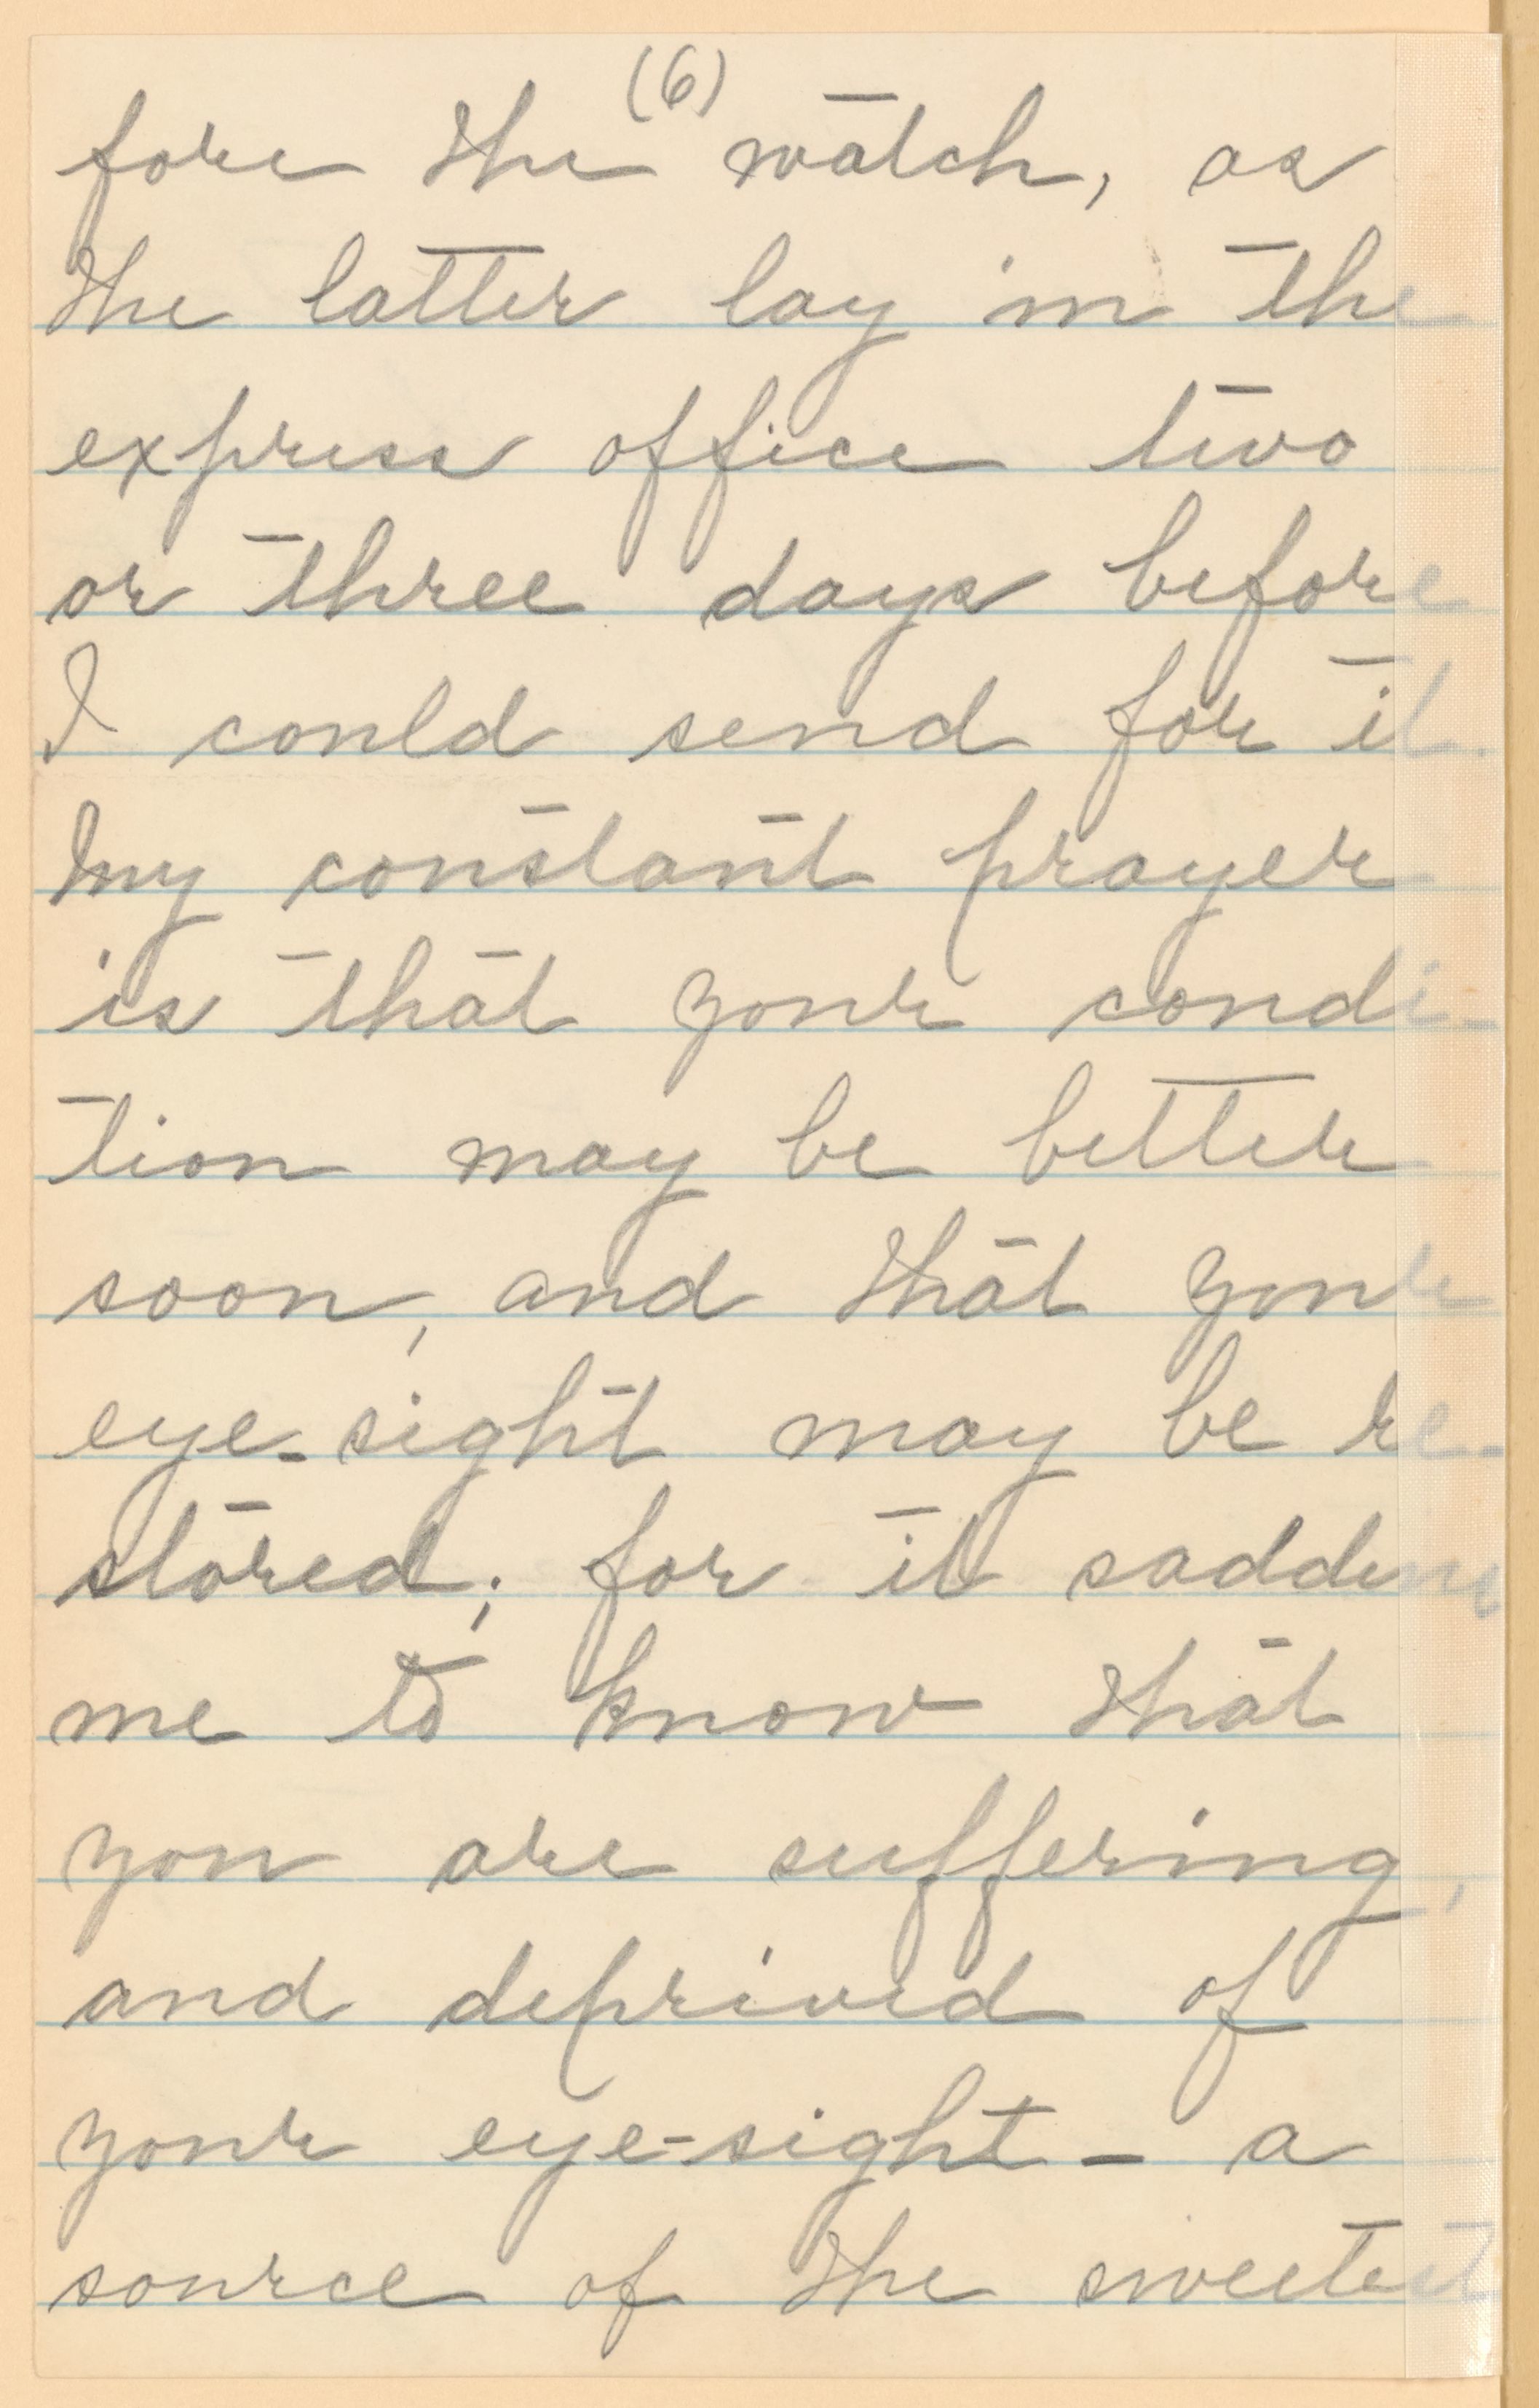 (6)
fore the watch, as
the latter lay in the
express office two
or three days before
I could send for it.
My constant prayer
is that your condi-
tion may be better
soon, and that your
eye-sight may be re-
stored; for it saddens
me to know that
you are suffering,
and deprived of
your eye-sight - a
source of the sweetest